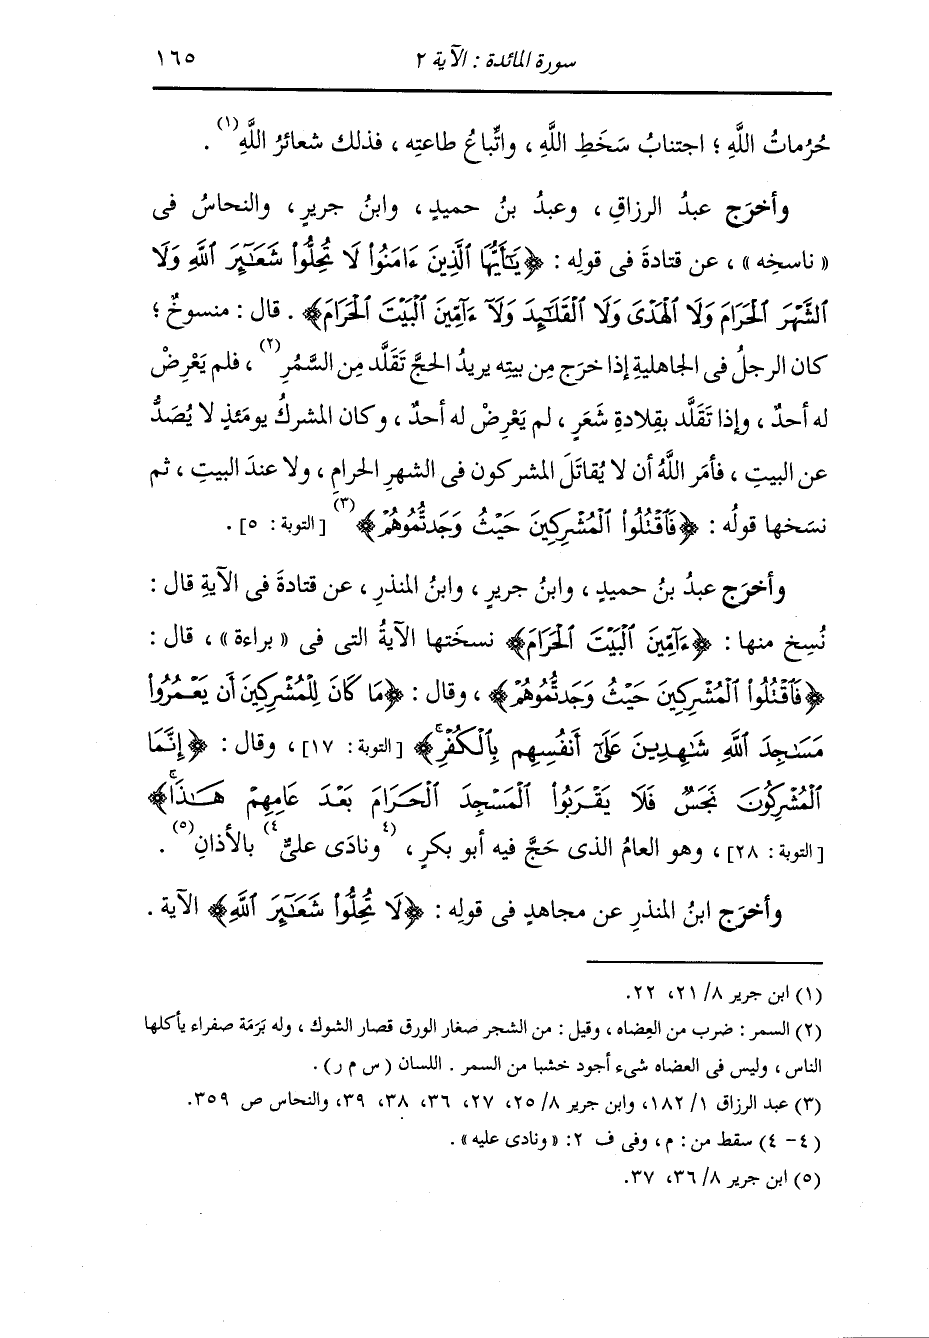 سورة المائدة : الآية ٢
١٦٥
حُرُماتُ اللَّهِ ؛ اجتنابُ سَخَطِ اللَّهِ ، واتِّباعُ طاعتِه ، فذلك شعائرُ اللَّهِ(١) .
وأخرَج عبدُ الرزاقِ ، وعبدُ بنُ حميدٍ ، وابنُ جريرٍ ، والنحاسُ فى
« ناسخِه » ، عن قتادةَ فى قولِه : ﴿يَٰٓأَيُّهَا ٱلَّذِينَ ءَامَنُوا۟ لَا تُحِلُّوا۟ شَعَٰٓئِرَ ٱللَّهِ وَلَا
ٱلشَّهْرَ ٱلْحَرَامَ وَلَا ٱلْهَدْىَ وَلَا ٱلْقَلَٰٓئِدَ وَلَآ ءَآمِّينَ ٱلْبَيْتَ ٱلْحَرَامَ﴾ . قال : منسوخٌ ؛
كان الرجلُ فى الجاهليةِ إذا خرَج مِن بيتِه يريدُ الحجَّ تَقَلَّد مِن السَّمُرِ(٢) ، فلم يَعْرِضْ
له أحدٌ ، وإذا تَقَلَّد بقِلادةِ شَعَرٍ ، لم يَعْرِضْ له أحدٌ ، وكان المشركُ يومَئذٍ لا يُصَدُّ
عن البيتِ ، فأمَر اللَّهُ أن لا يُقاتَلَ المشركون فى الشهرِ الحرامِ ، ولا عندَ البيتِ ، ثم
نسَخها قولُه : ﴿فَٱقْتُلُوا۟ ٱلْمُشْرِكِينَ حَيْثُ وَجَدتُّمُوهُمْ﴾(٣) [التوبة : ٥] .
وأخرَج عبدُ بنُ حميدٍ ، وابنُ جريرٍ ، وابنُ المنذرِ ، عن قتادةَ فى الآيةِ قال :
نُسِخ منها : ﴿ءَآمِّينَ ٱلْبَيْتَ ٱلْحَرَامَ﴾ نسخَتها الآيةُ التى فى « براءة » ، قال :
﴿فَٱقْتُلُوا۟ ٱلْمُشْرِكِينَ حَيْثُ وَجَدتُّمُوهُمْ﴾ ، وقال : ﴿مَا كَانَ لِلْمُشْرِكِينَ أَن يَعْمُرُوا۟
مَسَٰجِدَ ٱللَّهِ شَٰهِدِينَ عَلَىٰٓ أَنفُسِهِم بِٱلْكُفْرِ ۚ﴾ [التوبة : ١٧] ، وقال : ﴿إِنَّمَا
ٱلْمُشْرِكُونَ نَجَسٌ فَلَا يَقْرَبُوا۟ ٱلْمَسْجِدَ ٱلْحَرَامَ بَعْدَ عَامِهِمْ هَٰذَا ۚ﴾
[التوبة : ٢٨] ، وهو العامُ الذى حَجَّ فيه أبو بكرٍ ، (٤ونادَى علىٌّ٤) بالأذانِ(٥) .
وأخرَج ابنُ المنذرِ عن مجاهدٍ فى قولِه : ﴿لَا تُحِلُّوا۟ شَعَٰٓئِرَ ٱللَّهِ﴾ الآية .
(١) ابن جرير ٨/ ٢١، ٢٢.
(٢) السمر : ضرب من العِضاه ، وقيل : من الشجر صغار الورق قصار الشوك ، وله بَرَمَة صفراء يأكلها
الناس ، وليس فى العضاه شىء أجود خشبا من السمر . اللسان ( س م ر ) .
(٣) عبد الرزاق ١/ ١٨٢، وابن جرير ٨/ ٢٥، ٢٧، ٣٦، ٣٨، ٣٩، والنحاس ص ٣٥٩.
(٤ - ٤) سقط من : م ، وفى ف ٢: « ونادى عليه » .
(٥) ابن جرير ٨/ ٣٦، ٣٧.